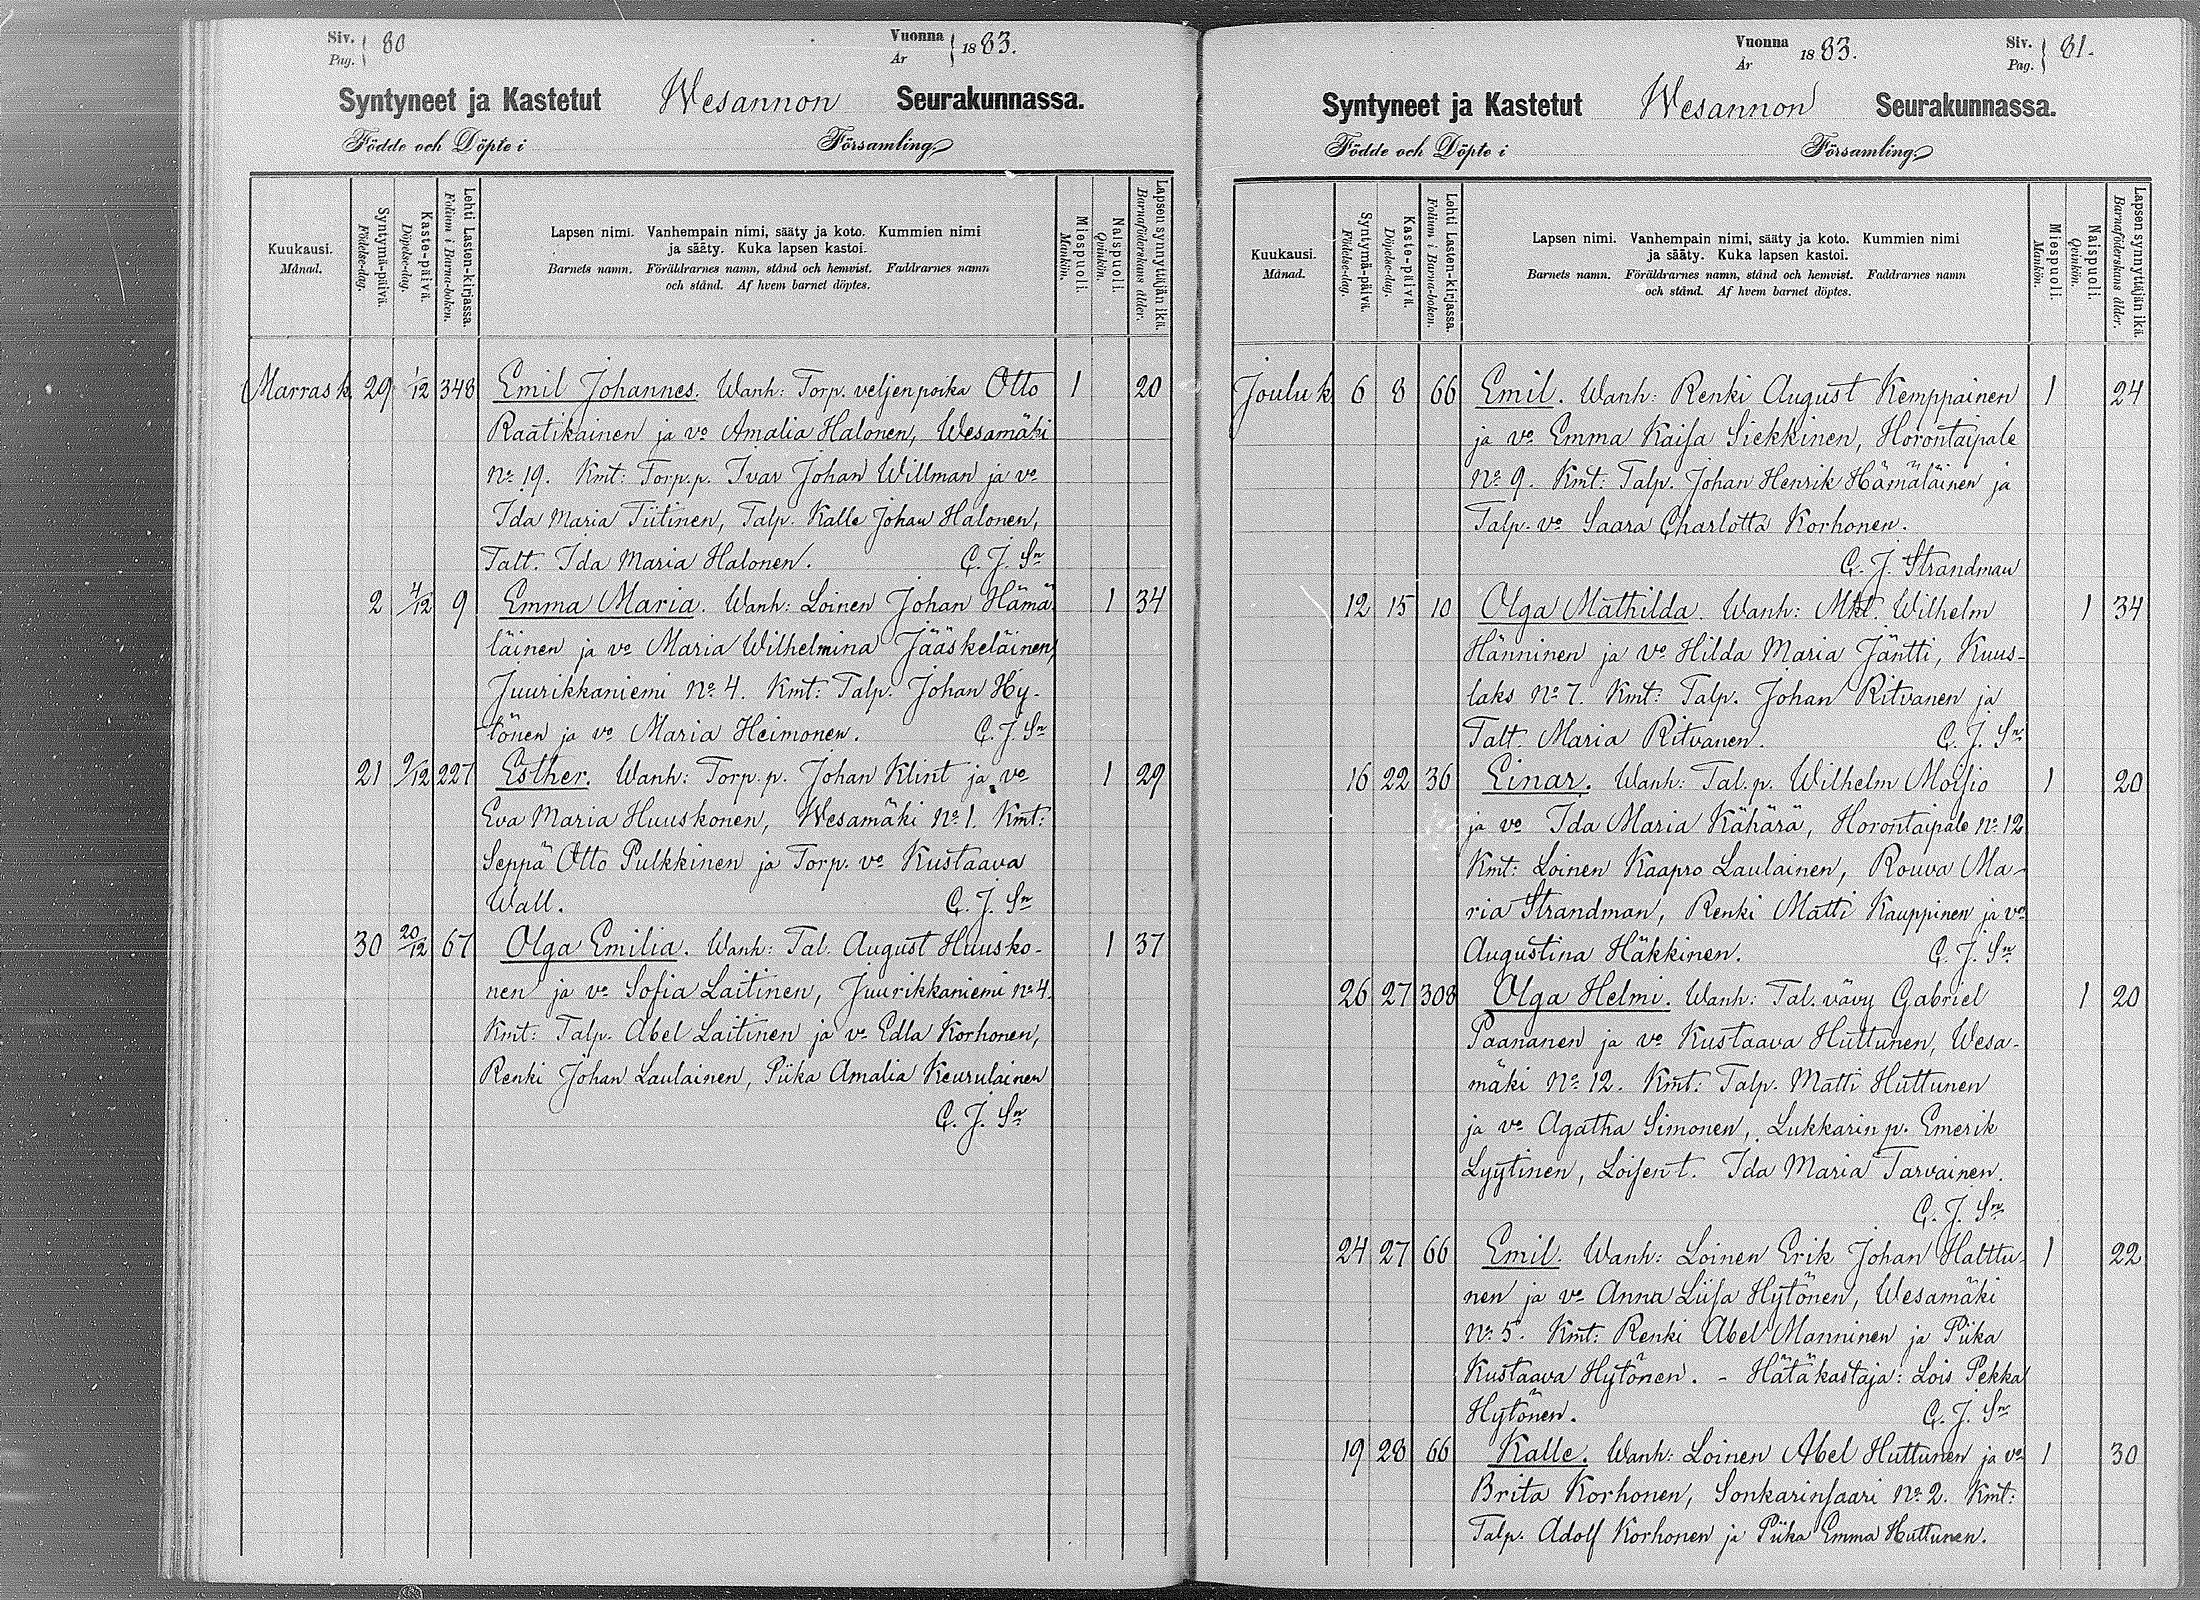 Siv. Pag. 80 Vuonna År 1883.
Syntyneet ja Kastetut Wesannon Seurakunnassa.
Födde och Döpte i Församling.
Kuukausi. Månad.
Syntymä-päivä. Födelse-dag.
Kaste-päivä. Döpelse-dag.
Lehti Lasten-kirjassa. Folium i Barna-boken.
Lapsen nimi. Vanhempain nimi, sääty ja koto. Kummien nimi
ja sääty. Kuka lapsen kastoi.
Barnets namn. Föräldrarnes namn, stånd och hemvist. Faddrarnes namn
och stånd. Af hvem barnet döptes.
Miespuoli. Mankön.
Naispuoli. Qvinkön.
Lapsen synnyttäjän ikä. Barnaföderskans ålder.
Marrask. 29 1/12 348 Emil Johannes. Wanh: Torp. veljenpoika Otto 1 20
Raatikainen ja vo Amalia Halonen, Wesamäki
No 19. Kmt: Torp.p. Ivar Johan Willman ja vo
Ida Maria Tiitinen, Talp. Kalle Johan Halonen,
Talt. Ida Maria Halonen. C. J. Sn
2 4/12 9 Emma Maria. Wanh: Loinen Johan Hämä 1 34
läinen ja vo Maria Wilhelmina Jääskeläinen,
Juurikkaniemi No 4. Kmt: Talp. Johan Hy-
tönen ja vo Maria Heimonen. C. J. Sn
21 9/12 227 Esther. Wanh: Torp. p. Johan Klint ja vo 1 29
Eva Maria Huuskonen, Wesamäki No 1. Kmt:
Seppä Otto Pulkkinen ja Torp. vo Kustaava
Wall. C. J. Sn
30 20/12 67 Olga Emilia. Wanh: Tal. August Huusko- 1 37
nen ja vo Sofia Laitinen, Juurikkaniemi No 4.
Kmt: Talp. Abel Laitinen ja vo Edla Korhonen,
Renki Johan Laulainen, Piika Amalia Keurulainen
C. J. Sn
Vuonna År 1883. Siv. Pag. 81.
Syntyneet ja Kastetut Wesannon Seurakunnassa.
Födde och Döpte i Församling.
Kuukausi. Månad.
Syntymä-päivä. Födelse-dag.
Kaste-päivä. Döpelse-dag.
Lehti Lasten-kirjassa. Folium i Barna-boken.
Lapsen nimi. Vanhempain nimi, sääty ja koto. Kummien nimi
ja sääty. Kuka lapsen kastoi.
Barnets namn. Föräldrarnes namn, stånd och hemvist. Faddrarnes namn
och stånd. Af hvem barnet döptes.
Miespuoli. Mankön.
Naispuoli. Qvinkön.
Lapsen synnyttäjän ikä. Barnaföderskans ålder.
Jouluk 6 8 66 Emil. Wanh: Renki August Kemppainen 1 24
ja vo Emma Kaisa Siekkinen, Horontaipale
No 9. Kmt: Talp. Johan Henrik Hämäläinen ja
Talp. vo Saara Charlotta Korhonen.
C. J. Strandman
12 15 10 Olga Mathilda. Wanh: Mkt. Wilhelm 1 34
Hänninen ja vo Hilda Maria Jäntti, Kuus-
laks No 7. Kmt: Talp. Johan Ritvanen ja
Talt. Maria Ritvanen. C. J. Sn
16 22 36 Einar. Wanh: Tal.p. Wilhelm Moisio 1 20
ja vo Ida Maria Kähärä, Horontaipale No 12
Kmt: Loinen Kaapro Laulainen, Rouva Ma-
ria Strandman, Renki Matti Kauppinen ja vo
Augustina Häkkinen. C. J. Sn
26 27 308 Olga Helmi. Wanh: Tal. vävy Gabriel 1 20
Paananen ja vo Kustaava Huttunen, Wesa-
mäki No 12. Kmt: Talp. Matti Huttunen
ja vo Agatha Simonen, Lukkarin p. Emerik
Lyytinen, Loisen t. Ida Maria Tarvainen.
C. J. Sn
24 27 66 Emil. Wanh: Loinen Erik Johan Halttu- 1 22
nen ja vo Anna Liisa Hytönen, Wesamäki
No 5. Kmt: Renki Abel Manninen ja Piika
Kustaava Hytönen. - Hätäkastaja: Lois Pekka
Hytönen. C. J. Sn
19 28 66 Kalle. Wanh: Loinen Abel Huttunen ja vo 1 30
Brita Korhonen, Sonkarinsaari No 2. Kmt:
Talp. Adolf Korhonen ja Piika Emma Huttunen.